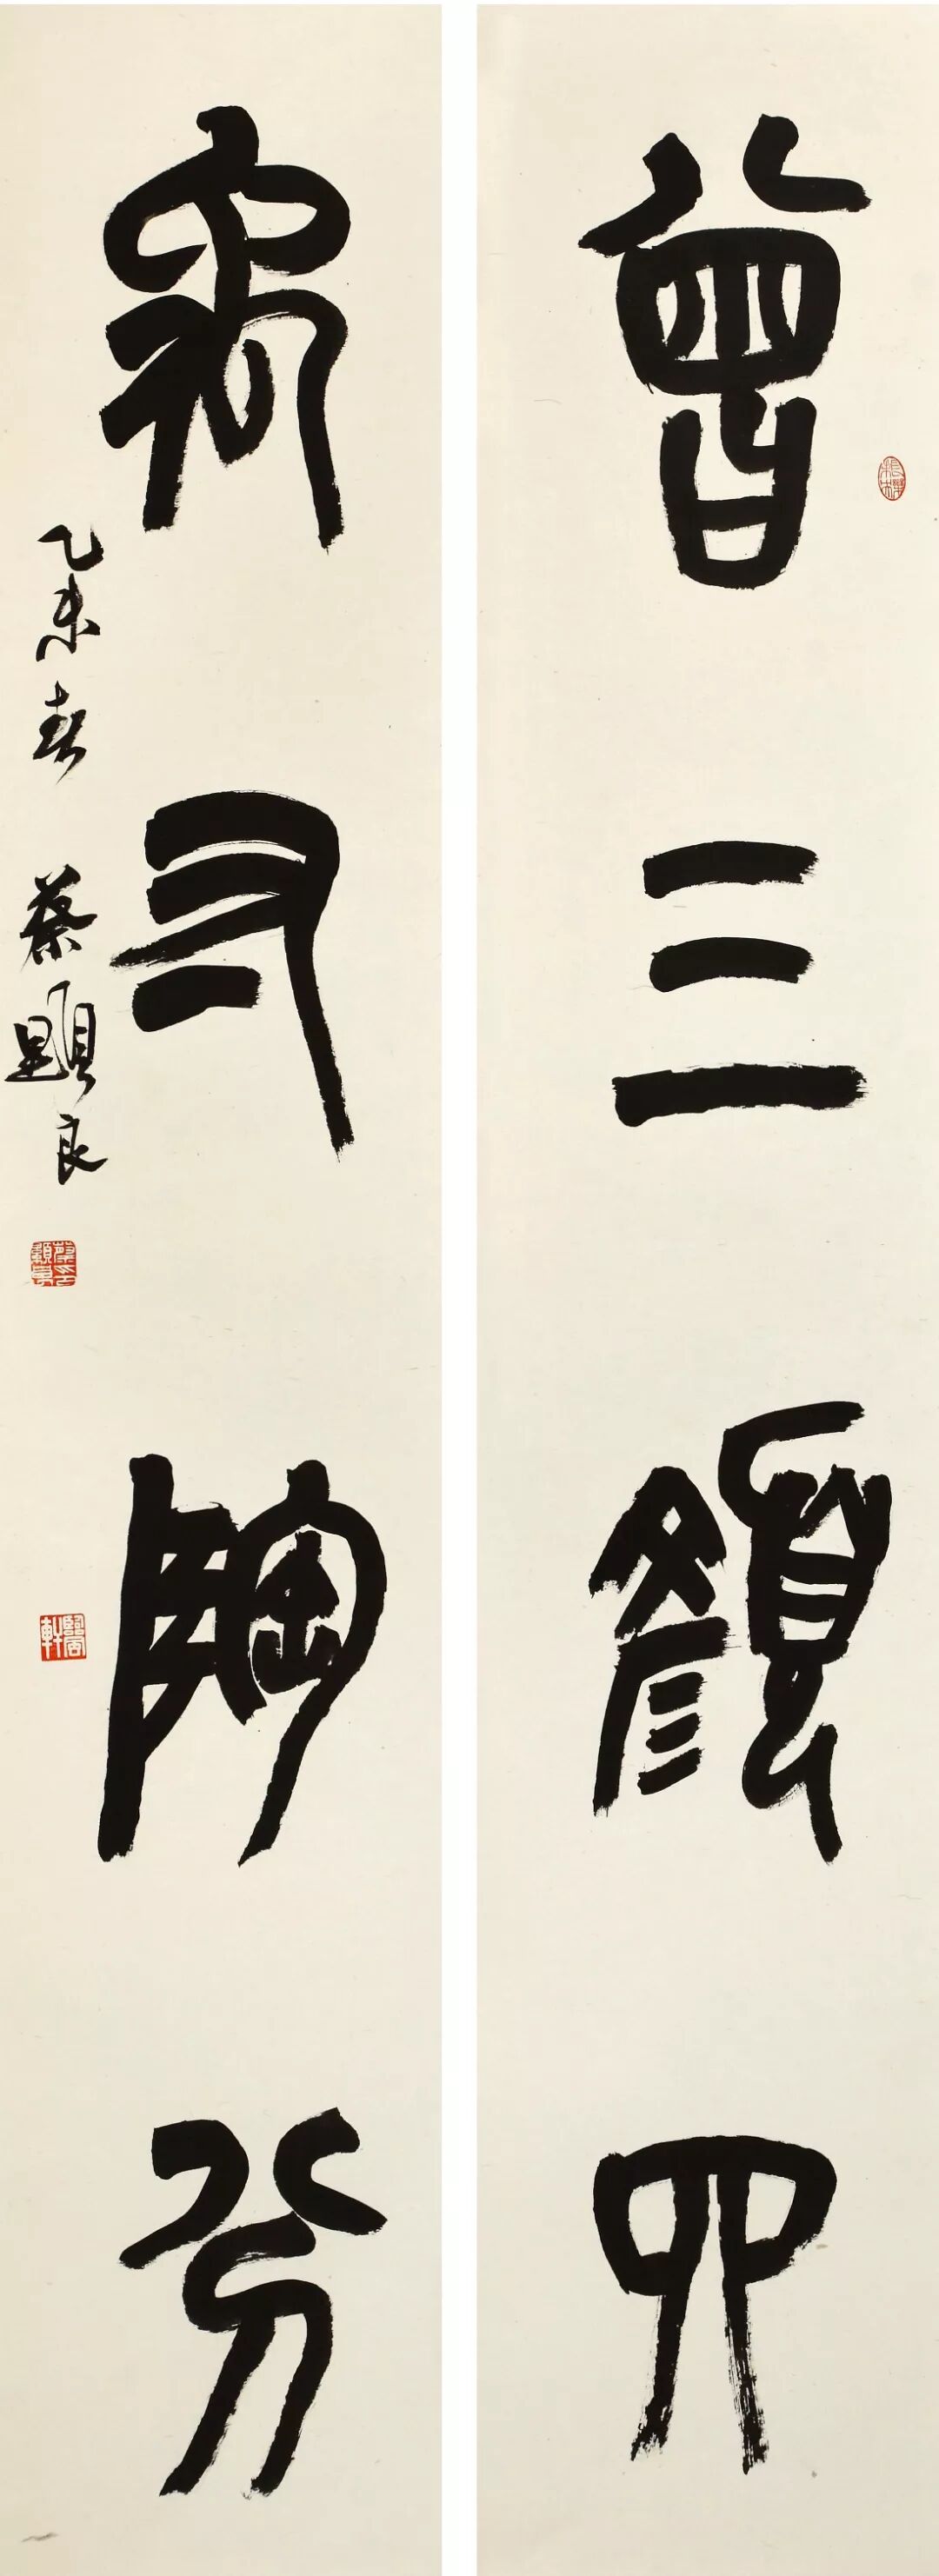 曾三顏四
禹寸陶分
乙未春 蔡顯良